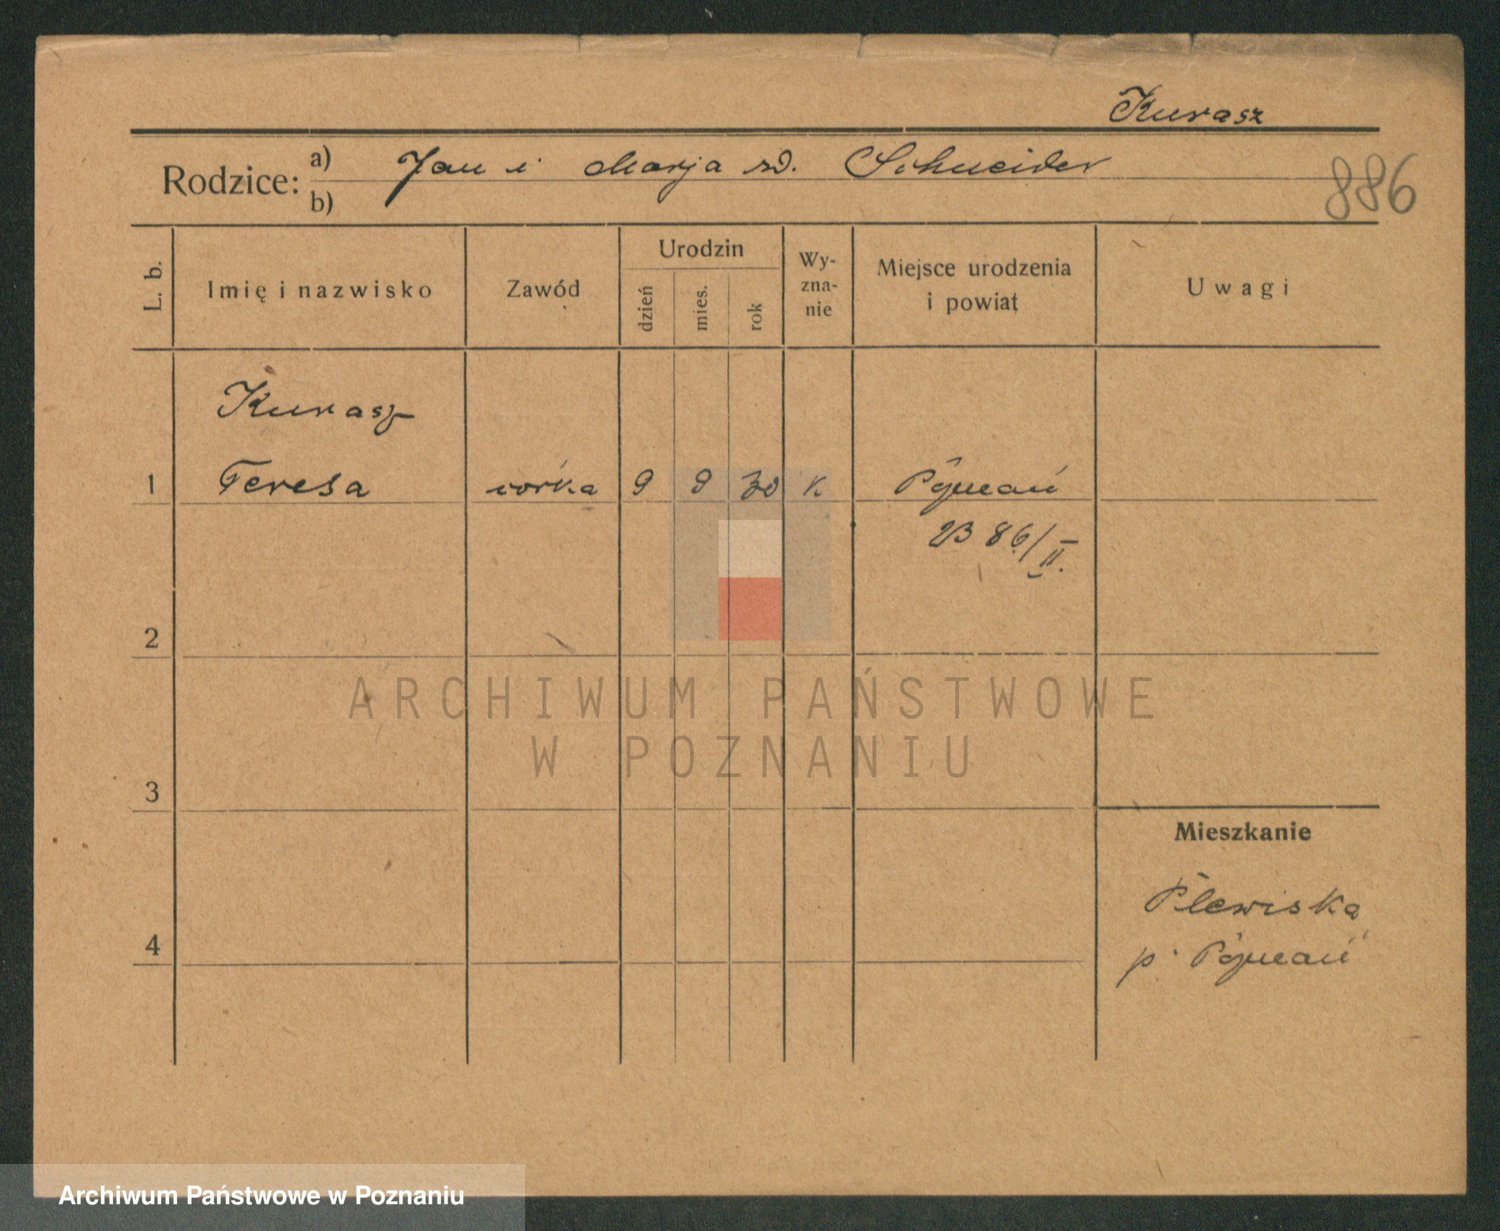 Kurasz
Rodzice: a) Jan i Marja rd. Schneider
b)
886
L. b. Imię i nazwisko Zawód Urodzin dzień mies. rok Wy-zna-nie Miejsce urodzenia i powiat Uwagi
Kurasz
1 Teresa córka 9 9 30 K Poznań
23 86/II.
2
ARCHIWUM PAŃSTWOWE
W POZNANIU
3
Mieszkanie
Plewiska
4
p. Poznań
Archiwum Państwowe w Poznaniu